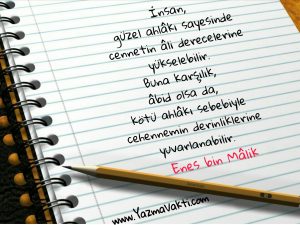 İnsan,
güzel ahlâkı sayesinde
cennetin âli derecelerine
yükselebilir.
Buna karşılık,
âbid olsa da,
kötü ahlâkı sebebiyle
cehennemin derinliklerine
yuvarlanabilir.
Enes bin Mâlik
www.YazmaVakti.com